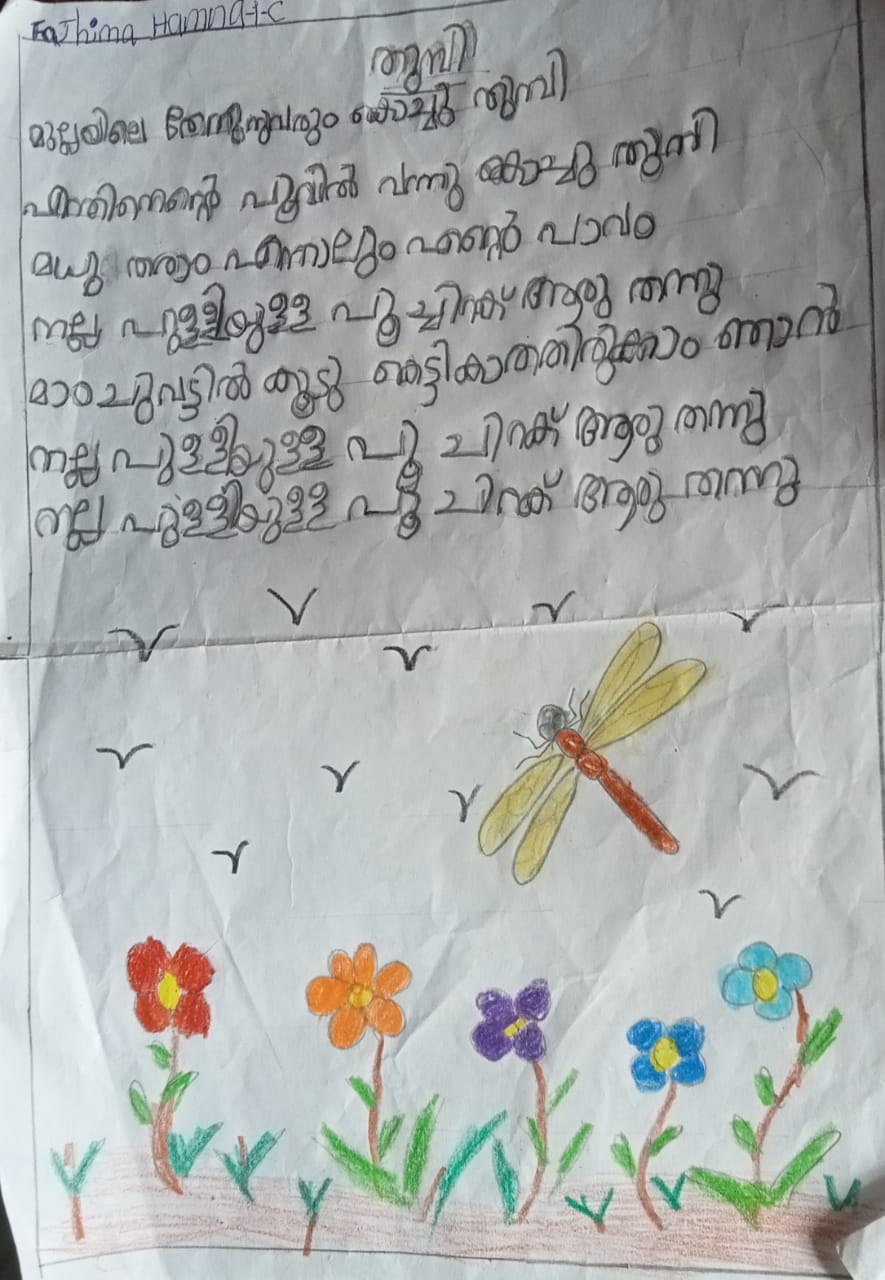 Fathima Hamna 1-C
തുമ്പി
മുല്ലയിലെ തേനുണ്ണുവരും കൊച്ചു തുമ്പി
എന്തിനെന്റെ പൂവിൽ വന്നു കൊച്ചു തുമ്പി
മധു തരാം എന്നാലും എന്റെ പാവം
നല്ല പുള്ളിയുള്ള പൂച്ചിറക് ആരു തന്നു
മാഠചുവട്ടിൽ കൂടു കെട്ടികാത്തിരുക്കാം ഞാൻ
നല്ല പുള്ളിയുള്ള പൂ ചിറക് ആരു തന്നു
നല്ല പുള്ളിയുള്ള പൂ ചിറക് ആരു തന്നു